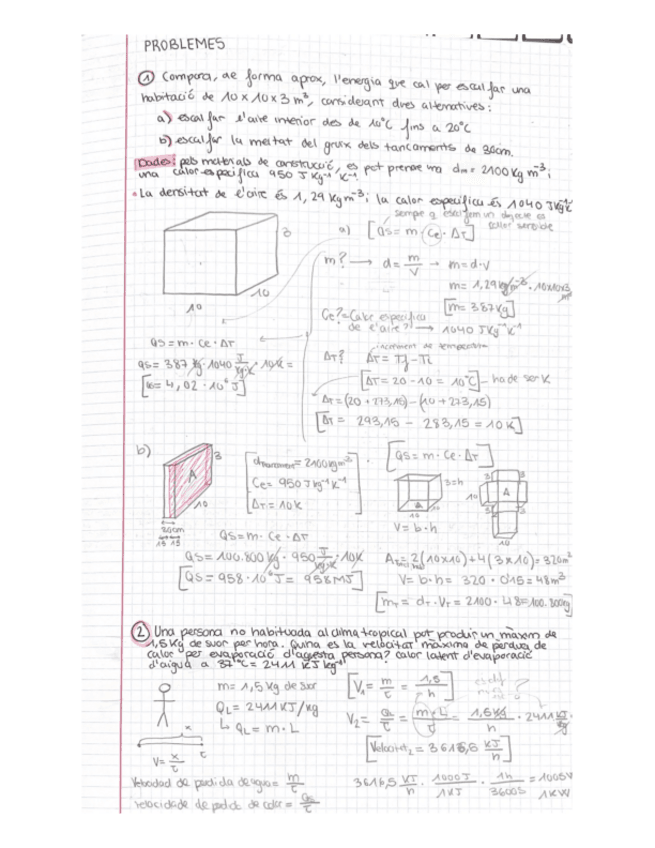 PROBLEMES
① Compara, de forma aprox, l'energia que cal per escalfar una
habitació de 10x10x3 m³, considerant dues alternatives:
a) escalfar l'aire interior des de 10°C fins a 20°C
b) escalfar la meitat del gruix dels tancaments de 30cm.
Dades: pels materials de construcció, es pot prendre una dm = 2100 Kg m⁻³ i
una calor específica 950 J Kg⁻¹ K⁻¹.
• La densitat de l'aire és 1,29 Kg m⁻³ i la calor específica és 1040 J Kg⁻¹ K⁻¹
sempre q escalfem un objecte és
calor sensible
a) [Qs = m · Ce · ΔT]
3
10
10
m? → d = m/V → m = d·V
m = 1,29 kg/m³ · 10x10x3 m³
[m = 387 Kg]
Ce? = Calor específica
de l'aire? → 1040 J Kg⁻¹ K⁻¹
increment de temperatura
ΔT? ΔT = Tf - Ti
[ΔT = 20 - 10 = 10°C] - ha de ser K
ΔT = (20 + 273,15) - (10 + 273,15)
[ΔT = 293,15 - 283,15 = 10 K]
Qs = m · Ce · ΔT
Qs = 387 kg · 1040 J/kg·K · 10 K =
[Qs = 4,02 · 10⁶ J]
b)
A
3
10
30cm
15 15
[dtancament = 2100 kg m⁻³
Ce = 950 J kg⁻¹ K⁻¹
ΔT = 10 K]
[Qs = m · Ce · ΔT]
3=h
10
V = b · h
3
3
10
A
3
3
10
Qs = m · Ce · ΔT
Qs = 100.800 kg · 950 J/kg·K · 10K
[Qs = 958 · 10⁶ J = 958 MJ]
AT = 2(10x10) + 4(3x10) = 320m²
V = b · h = 320 · 0,15 = 48m³
[mT = dT · VT = 2100 · 48 = 100.800kg]
② Una persona no habituada al clima tropical pot produir un màxim de
1,5 Kg de suor per hora. Quina és la velocitat màxima de pèrdua de
calor per evaporació d'aquesta persona? calor latent d'evaporació
d'aigua a 37°C = 2411 KJ kg⁻¹
m = 1,5 Kg de suor
QL = 2411 KJ/kg
↳ QL = m · L
x
t
V = x/t
[V1 = m/t = 1,5/h]
V2 = QL/t = m·L/t = 1,5 Kg/h · 2411 KJ/kg
[Velocitat2 = 3616,5 KJ/h]
Velocidad de perdida de agua = m/t
velocidade de perdida de calor = QL/t
3616,5 KJ/h · 1000J/1KJ · 1h/3600s = 1005W
1KW